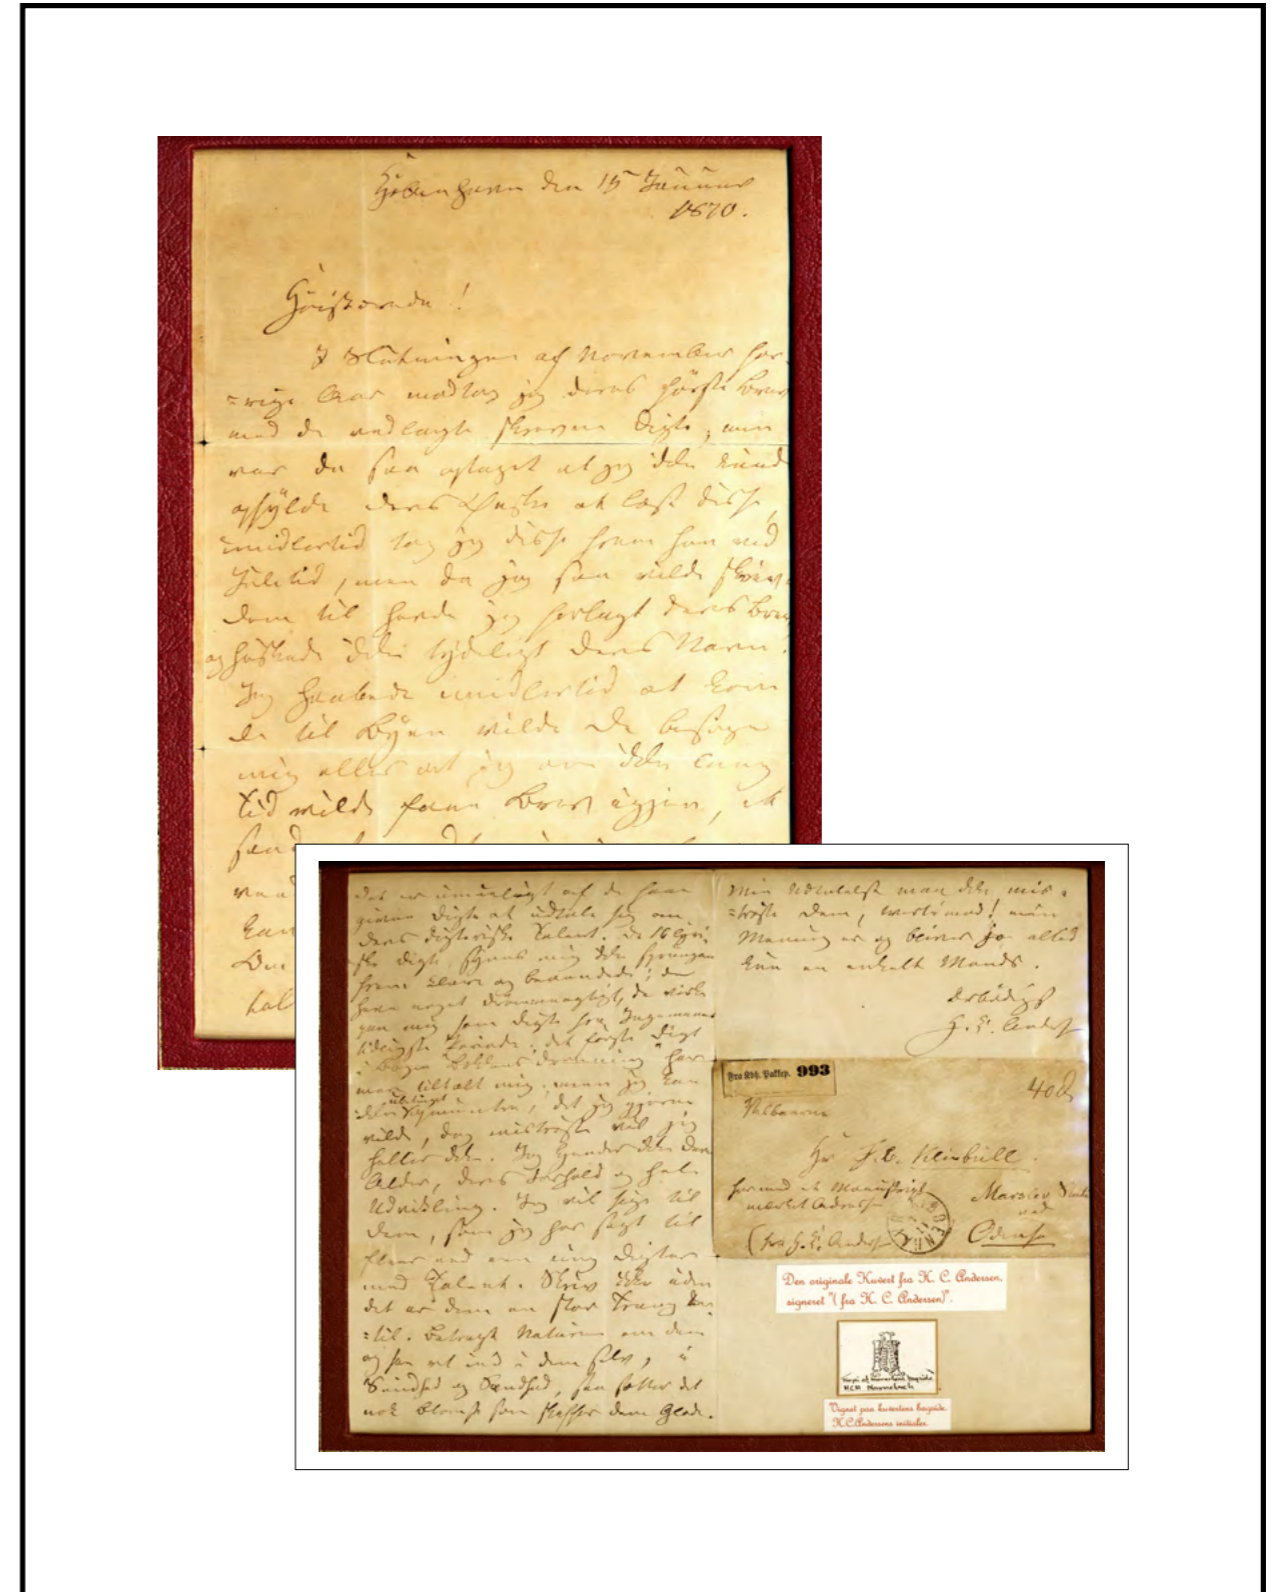 Kjøbenhavn den 15 Januar
1870.
Høistærede!
I Slutningen af November for-
=rige Aar modtog jeg deres første Brev
med de vedlagte skrevne Digte, men
var da saa optaget at jeg ikke kunde
opfylde deres Ønske at læse disse,
imidlertid tog jeg disse frem her ved
Juletid, men da jeg saa vilde skrive
dem til havde jeg forlagt deres Brev
og huskede ikke tydeligt deres Navn.
Jeg haabede imidlertid at kom
de til Byen vilde De besøge
mig eller at jeg om ikke lang
tid vilde faae Brev igjen, et
det er umueligt af de faae
givne Digte at udtale sig om
deres digteriske Talent. De 16 lyri-
ske Digte, synes mig ikke sprungen
frem klare og ; de
have noget drømmeagtigt, de virke
paa mig som Digte fra Ingemanns
tidligste Periode; det første Digt
i Bogen " Dronning" har
meest tiltalt mig, men jeg kan
ikke ubetinget , det jeg gjerne
vilde, dog mistrøste vil jeg
heller ikke. Jeg kjender ikke Deres
Alder, deres Forhold og hele
Udvikling. Jeg vil sige til
dem, som jeg har sagt til
flere end een ung Digter
med Talent. Skriv ikke uden
det er dem en stor Trang der-
=til. Betragt Naturen om dem
og see ret ind i dem selv, i
Sundhed og Sandhed, saa sætter det
nok Blomst som skaffer dem Glæde.
Min Udtalelse maa ikke mis-
=trøste dem, tvertimod! min
Mening er og bliver jo altid
kun en enkelt Mands.
Ærbødigst
H. C. Andersen
Fra Kbh. Pakkep. 993
40
Hr F. L. Kleinbüll.
hermed et Manuskript
mærket Adresse
Marslev
ved
(fra H. C. Andersen)
Odense
Den originale Kuvert fra H. C. Andersen,
signeret "(fra H. C. Andersen)".
Vignet paa kuvertens bagside.
H.C.Andersens initialer.